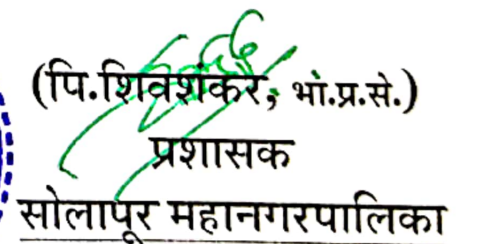 (पि.शिवशंकर, भां.प्र.से.)
प्रशासक
सोलापूर महानगरपालिका